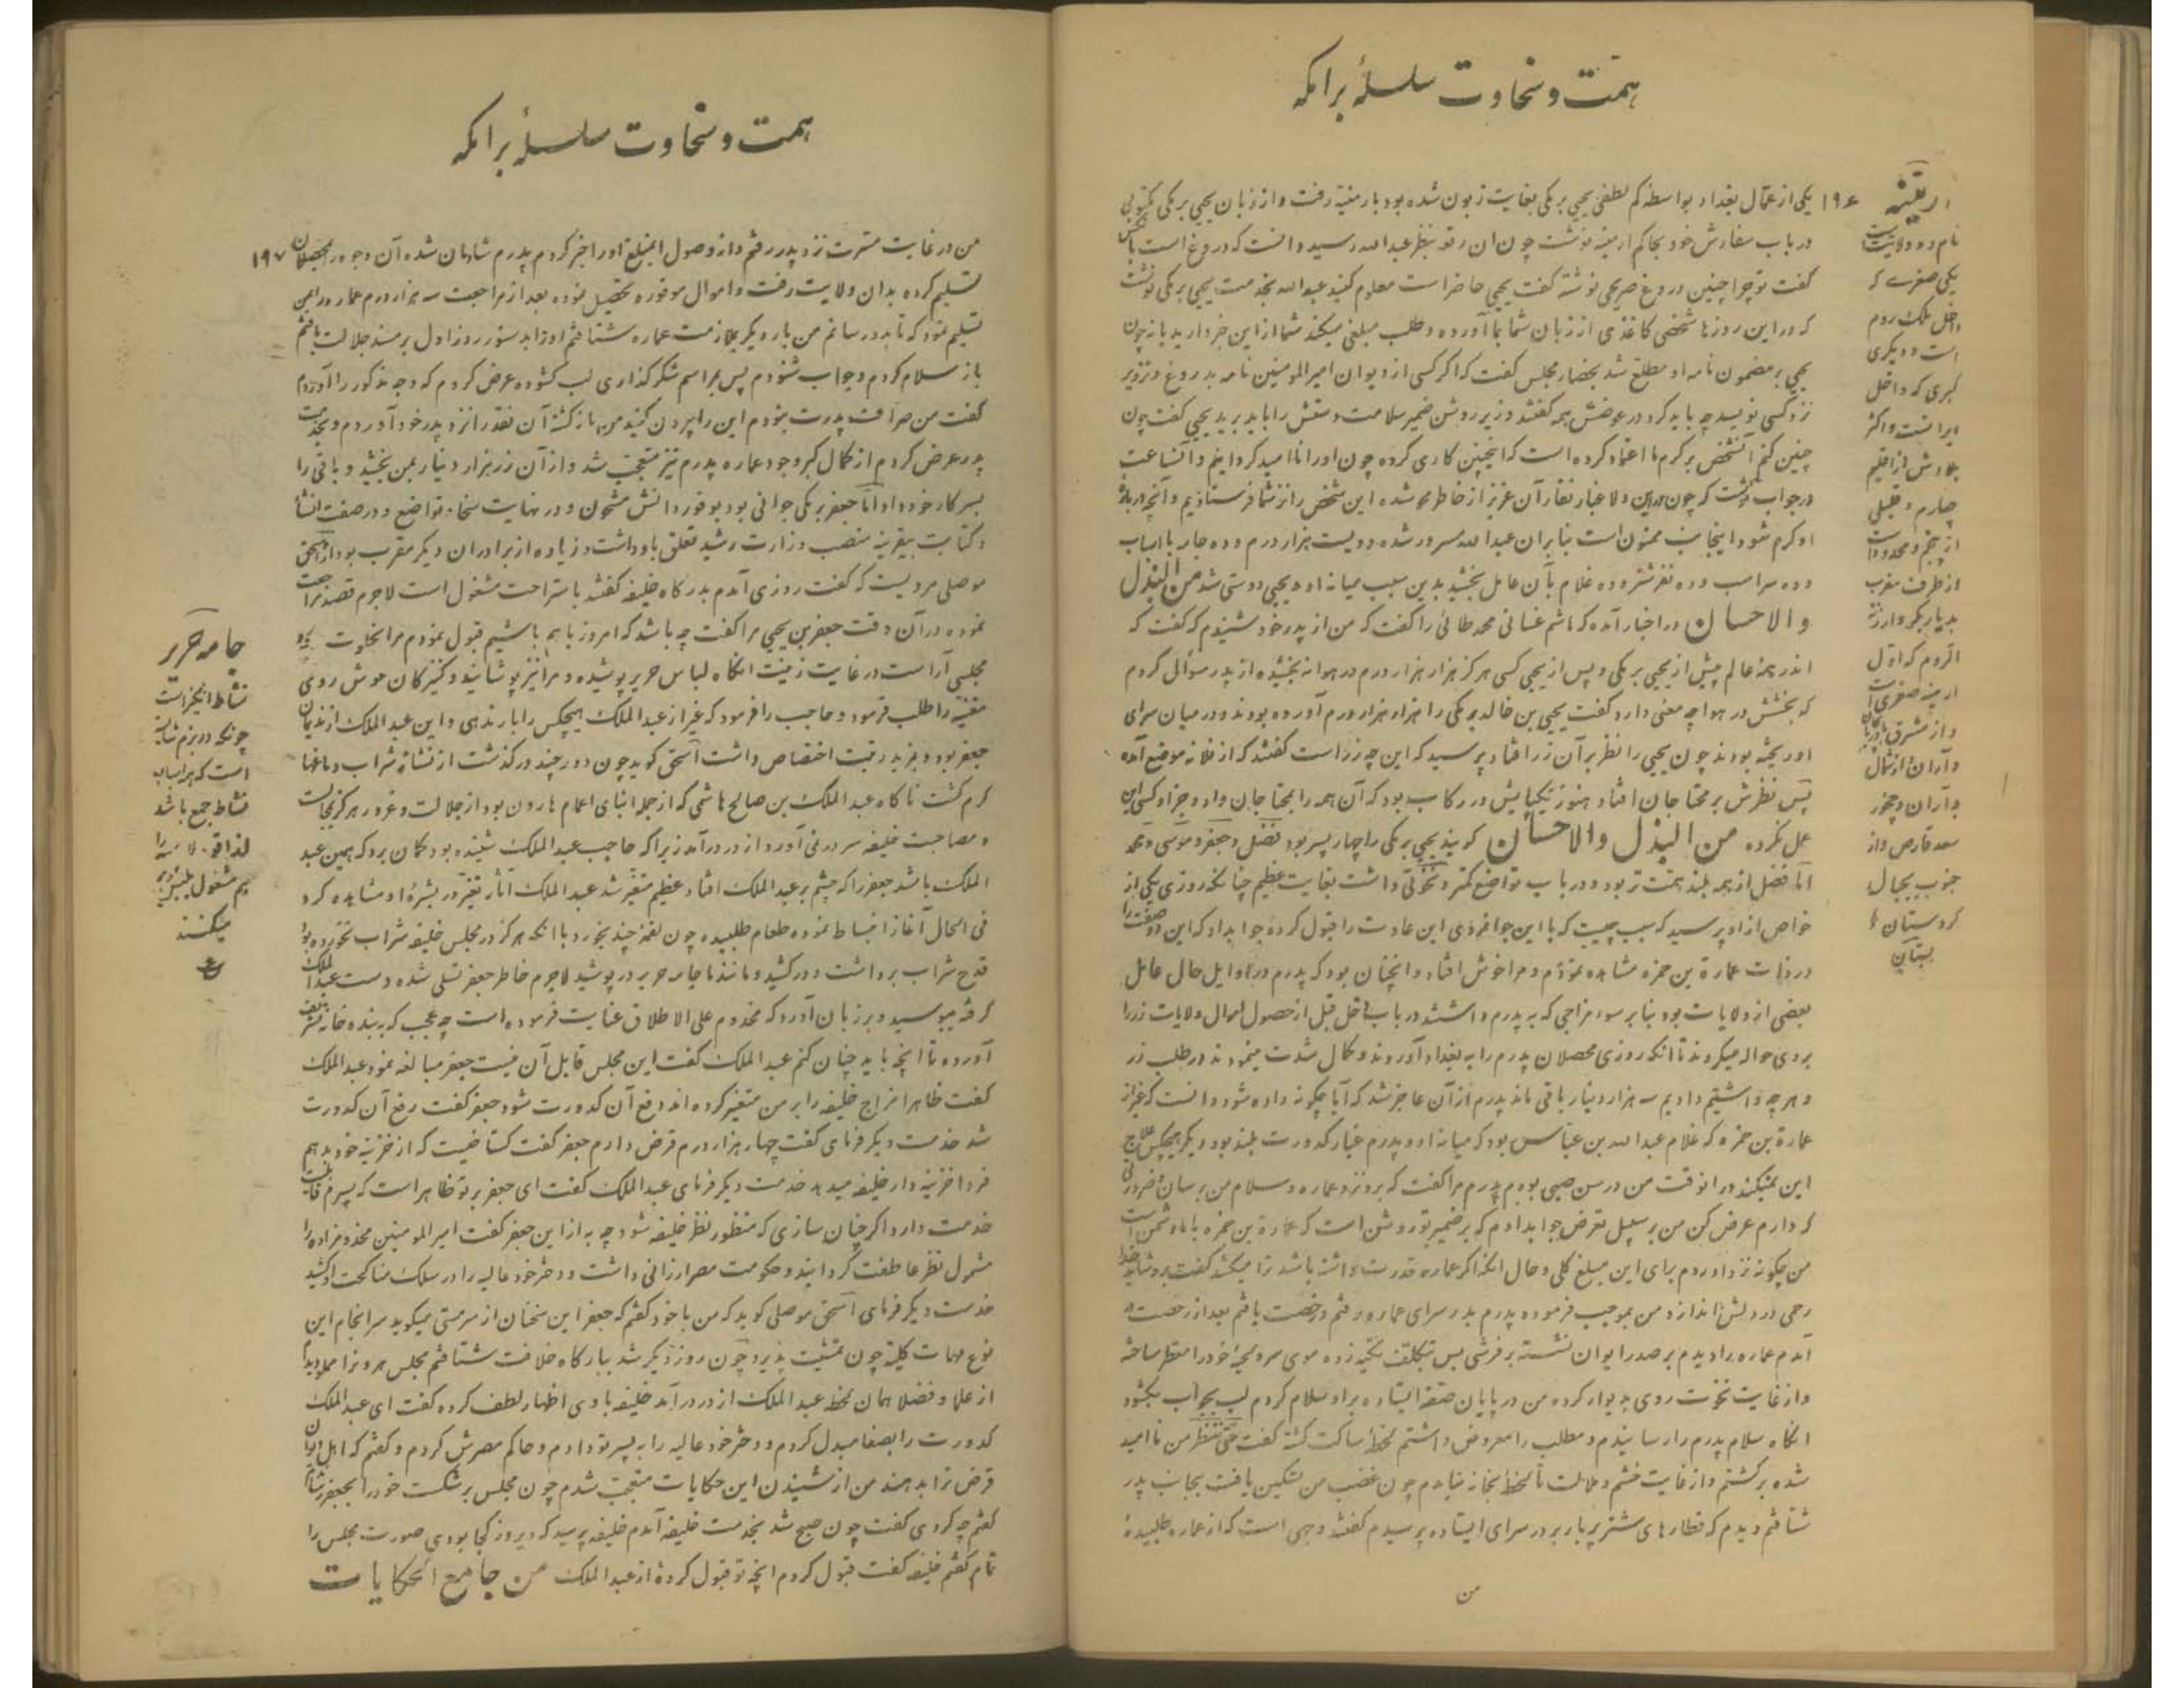 همت و سخاوت سلسلهٔ برامکه
۱۹۶
یکی از عمّال بغداد بواسطه کم لطفی یحیی برمکی بغایت زبون شده بود بارمنیّه رفت و از زبان یحیی برمکی مکتوبی
در باب سفارش خود بحاکم ارمنیه نوشت چون آن رقعه بنظر عبدالله رسید دانست که دروغ است باآنکس
گفت تو چرا چنین دروغ صریحی نوشته گفت یحیی حاضر است معلوم کنید عبدالله بخدمت یحیی برمکی نوشت
که در این روزها شخصی کاغذی از زبان شما بما آورده و طلب مبلغی میکند شما از این خبر دارید یا نه چون
یحیی بر مضمون نامه او مطلع شد بحضار مجلس گفت که اگر کسی از دیوان امیرالمومنین نامه بدروغ و تزویر
نزد کسی نویسد چه باید کرد در عوضش همه گفتند وزیر روشن ضمیر سلامت دستش را باید برید یحیی گفت چون
چنین کنم آنشخص بر کرم ما اعتماد کرده است که اینچنین کاری کرده چون او را ناامید گردانیم و آنساعت
در جواب نوشت که چون درین ولا غبار نقار آن عزیز از خاطر محو شده این شخص را نزد شما فرستادیم و آنچه درباره
او کرم شود اینجانب ممنون است بنابران عبدالله مسرور شده دویست هزار درم و ده جامه با اسباب
و ده سر اسب و ده نفر شتر و ده غلام بآن عامل بخشید بدین سبب میانه او و یحیی دوستی شد من البذل
والاحسان در اخبار آمده که هاشم غسانی محمد طائی را گفت که من از پدر خود شنیدم که گفت که
اندر همهٔ عالم پیش از یحیی برمکی و پس از یحیی کسی هرگز هزار هزار درم در هوا نه بخشیده از پدر سوالی کردم
که بخشش در هوا چه معنی دارد گفت یحیی بن خالد برمکی را هزار هزار درم آورده بودند و در میان سرای
او ریخته بودند چون یحیی را نظر بر آن زر افتاد پرسید که این چه زر است گفتند که از فلانه موضع آمده
پس نظرش بر محتاجان افتاد هنوز یکپایش در رکاب بود که آن همه را بمحتاجان داد و جز او کسی این
عمل نکرده من البذل والاحسان گویند یحیی برمکی را چهار پسر بود فضل و جعفر و موسی و محمد
امّا فضل از همه بلند همّت تر بود و در باب تواضع کمتر و نخوتی داشت بغایت عظیم چنانکه روزی یکی از
خواص از او پرسید که سبب چیست که با این جوانمردی این عادت را قبول کرده جوابداد که این دو صفت را
در ذات عمارة بن حمزه مشاهده نمودم و مرا خوش افتاد و انچنان بود که پدرم در اوایل حال عامل
بعضی از ولایات بود بنا بر سوء مزاجی که به پدرم داشتند در باب دخل قبل از حصول اموال ولایات زر را
بروی حواله میکردند تا آنکه روزی محصلان پدرم را به بغداد آوردند و کمال شدت مینمودند در طلب زر
و هر چه داشتیم دادیم سه هزار دینار باقی ماند پدرم از آن عاجز شد که آیا چگونه داده شود دانست که غیر از
عمارة بن حمزه که غلام عبدالله بن عباس بود که میانه او و پدرم غبار کدورت بلند بود دیگر هیچکس علاج
این نمیکند در انوقت من در سن صبی بودم پدرم مرا گفت که برو نزد عماره و سلام من برسان و ضرورتی
که دارم عرض کن من بر سبیل تعرض جوابدادم که بر ضمیر تو روشن است که عمارة بن حمزه با ما دشمن است
من چگونه نزد او روم برای این مبلغ کلی و حال انکه اگر عماره قدرت داشته باشد ترا میکشد گفت برو شاید خدا
رحمی در دلش اندازد من بموجب فرموده پدرم بدر سرای عماره رفتم و رخصت یافتم بعد از رخصت در
آمدم عماره را دیدم بر صدر ایوان نشسته بر فرشی بس بتکلف تکیه زده موی سر و لحیه خود را معطر ساخته
و از غایت نخوت روی بدیوار کرده من در پایان صفه ایستاده بر او سلام کردم لب بجواب نگشود
انگاه سلام پدرم را رسانیدم و مطلب را معروض داشتم لحظه ساکت گشته گفت حتی ننظر من ناامید
شده برگشتم و از غایت خشم و ملالت تا لحظه بخانه نیامدم چون غضب من تسکین یافت بجانب پدر
شتافتم دیدم که قطارهای شتر پر بار بر در سرای ایستاده پرسیدم گفتند وجهی است که از عماره طلبیدهٔ
من
ارمنیّه
نام دو ولایت است
یکی صغری که
داخل ملک روم
است و دیگری
کبری که داخل
ایرانست و اکثر
بلادش از اقلیم
چهارم و قلیلی
از پنجم و محدود است
از طرف مغرب
بدیار بکر و ارزن
الروم که اوّل
ارمنیه صغری است
و از مشرق
و اران و از شمال
باران و خزر
سعد قارص و از
جنوب بجبال
کردستان
همت و سخاوت سلسلهٔ برامکه
۱۹۷
من در غایت مسرت نزد پدر رفتم و از وصول المبلغ او را خبر کردم پدرم شادمان شده آن وجه را بمحصلان
تسلیم کرده بدان ولایت رفت و اموال موفوره تحصیل نموده بعد از مراجعت سه هزار درم عماره را بمن
تسلیم نمود که تا بدو رسانم من بار دیگر بملازمت عماره شتافتم او را بدستور روز اول بر مسند جلالت یافتم
باز سلام کردم و جواب نشنودم پس بمراسم شکرگذاری لب گشوده عرض کردم که وجه مذکور را آوردم
گفت من صراف پدرت نبودم این را بیرون کنید من بازگشته آن نقد را نزد پدر خود آوردم و بخدمت
پدر عرض کردم از کمال کبر و جود عماره پدرم نیز متعجب شد و از آن زر هزار دینار بمن بخشید و باقی را
بسرکار خود داد امّا جعفر برمکی جوانی بود بوفور دانش مشحون و در نهایت سخا و تواضع و در صفت انشا
و کتابت بیقرینه منصب وزارت رشید تعلق باو داشت و زیاده از برادران دیگر مقرب بود از اسحق
موصلی مرویست که گفت روزی آمدم بدرگاه خلیفه گفتند باستراحت مشغول است لاجرم قصد مراجعت
نموده در آن وقت جعفر بن یحیی مرا گفت چه باشد که امروز با هم باشیم قبول نمودم مرا بخلوت
مجلسی آراست در غایت زینت انگاه لباس حریر پوشیده و مرا نیز پوشانید و کنیزکان خوش روی
مغنیّه را طلب فرمود و حاجب را فرمود که غیر از عبدالملک هیچکس را بار ندهی و این عبدالملک از ندیمان
جعفر بود و بمزید رقبت اختصاص داشت اسحق گوید چون دور چند درگذشت از نشاهٔ شراب دماغها
گرم گشت ناگاه عبدالملک بن صالح هاشمی که از جمله ابنای اعمام هارون بود از جلالت و غرور هرگز بمجالست
و مصاحبت خلیفه سر در نمی آورد از در درآمد زیرا که حاجب عبدالملک شنیده بود گمان برد که همین عبد
الملک باشد جعفر را که چشم بر عبدالملک افتاد عظیم متغیّر شد عبدالملک آثار تغیّر در بشرهٔ او مشاهده کرد
فی الحال آغاز انبساط نموده طعام طلبیده چون لقمهٔ چند بخورد با انکه هرگز در مجلس خلیفه شراب نخورده بود
قدح شراب برداشت و درکشید و مانند ما جامه حریر در پوشید لاجرم خاطر جعفر تسلی شده دست عبدالملک
گرفته ببوسید و بر زبان آورد که مخدوم علی الاطلاق عنایت فرموده است چه عجب که بنده خانه تشریف
آورده تا انچه باید چنان کنم عبدالملک گفت این مجلس قابل آن نیست جعفر مبالغه نمود عبدالملک
گفت ظاهرا مزاج خلیفه را بر من متغیّر کرده اند دفع آن کدورت شود جعفر گفت رفع آن کدورت
شد خدمت دیگر فرمای گفت چهار هزار درم قرض دارم جعفر گفت گستاخیست که از خزینه خود بدهم
فردا خزینه دار خلیفه میدهد خدمت دیگر فرمای عبدالملک گفت ای جعفر بر تو ظاهر است که پسرم قابلیت
خدمت دارد اگر چنان سازی که منظور نظر خلیفه شود چه به از این جعفر گفت امیرالمومنین مخدومزاده را
مشمول نظر عاطفت گردانید و حکومت مصر ارزانی داشت و دختر خود عالیه را در سلک مناکحت او کشید
خدمت دیگر فرمای اسحق موصلی گوید که من با خود گفتم که جعفر این سخنان از سر مستی میگوید سرانجام این
نوع مهمات کلیّه چون تمشیت پذیرد چون روز دیگر شد ببارگاه خلافت شتافتم مجلس هارون را مملو دیدم
از علما و فضلا همان لحظه عبدالملک از در درآمد خلیفه با وی اظهار لطف کرده گفت ای عبدالملک
کدورت را بصفا مبدل کردم و دختر خود عالیه را به پسر تو دادم و حاکم مصرش کردم و گفتم که اهل دیوان
قرض ترا بدهند من از شنیدن این حکایات متعجب شدم چون مجلس برشکست خود را بجعفر رساندم
گفتم چه کردی گفت چون صبح شد بخدمت خلیفه آمدم خلیفه پرسید که دیروز کجا بودی صورت مجلس را
تمام گفتم خلیفه گفت قبول کردم انچه تو قبول کردهٔ از عبدالملک من جامع الحکایات
جامه حریر
نشاط انگیز است
چونکه در بزم شاهانه
است که هر اسباب
نشاط جمع باشد
لذا قوه لامسه را
هم مشغول بلبس حریر
میکنند